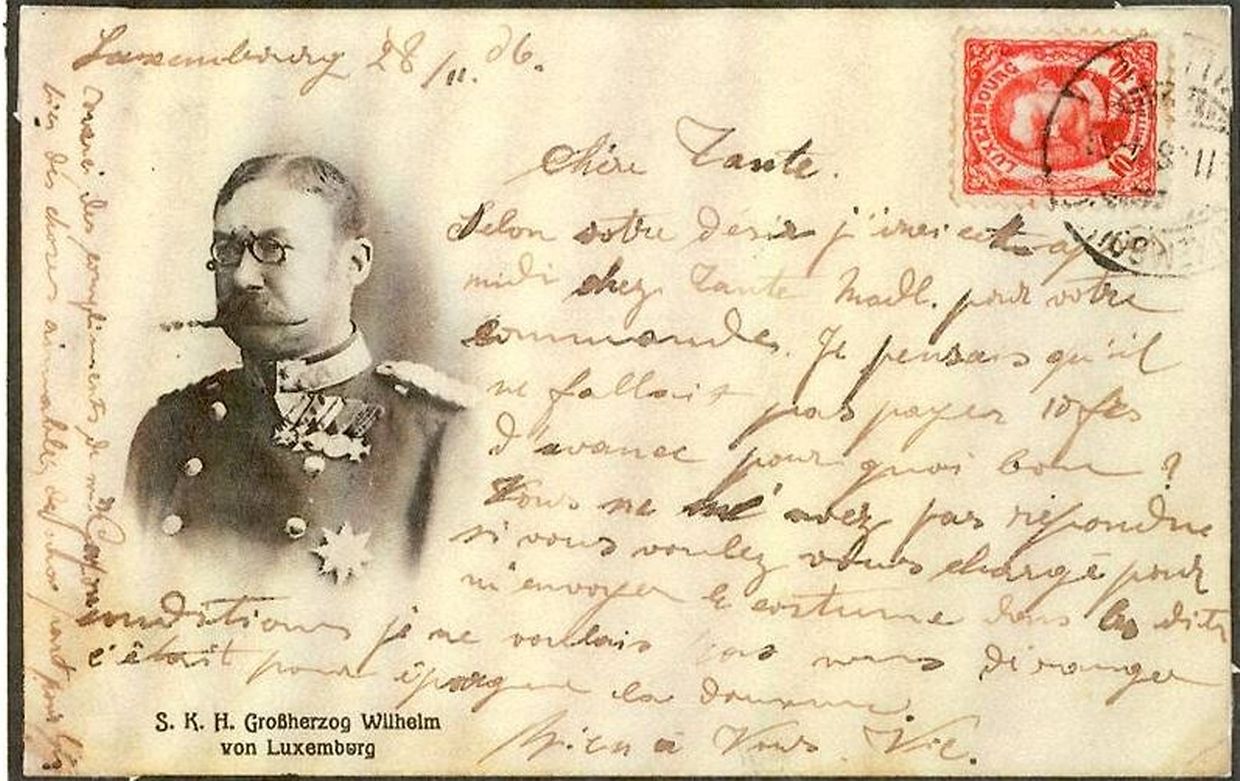 Luxembourg 28/11. 06.
LUXEMBOURG
10
11
Chère Tante.
Selon votre désir j'irai cet ap
midi chez Tante Madl. pour votre
commande. Je pensais qu'il
ne fallait pas payer 10 frs
d'avance pourquoi bon ?
Vous ne m'avez pas répondre
si vous voulez vous chargé pour
m'envoyer le costume dans les dits
conditions je ne voulais pas vous déranger
c'était pour épargner la
Bien à Vous. Vic.
merci des compliments de
bien des choses aimables de
S. K. H. Großherzog Wilhelm
von Luxemberg